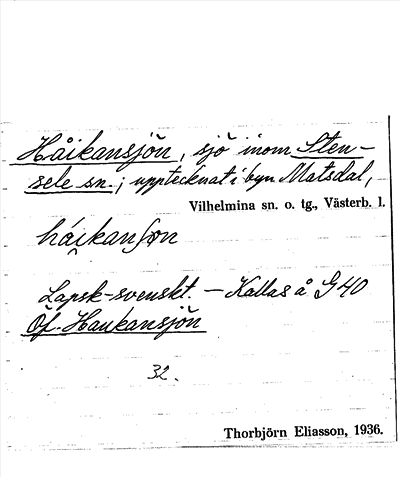 Håikansjön, sjö inom Sten-
sele sn.; upptecknat i byn Matsdal,
Vilhelmina sn. o. tg., Västerb. l.
håi̯kanʃøn
Lapsk-svenskt. — Kallas å G40
Öf. Haukansjön
32.
Thorbjörn Eliasson, 1936.